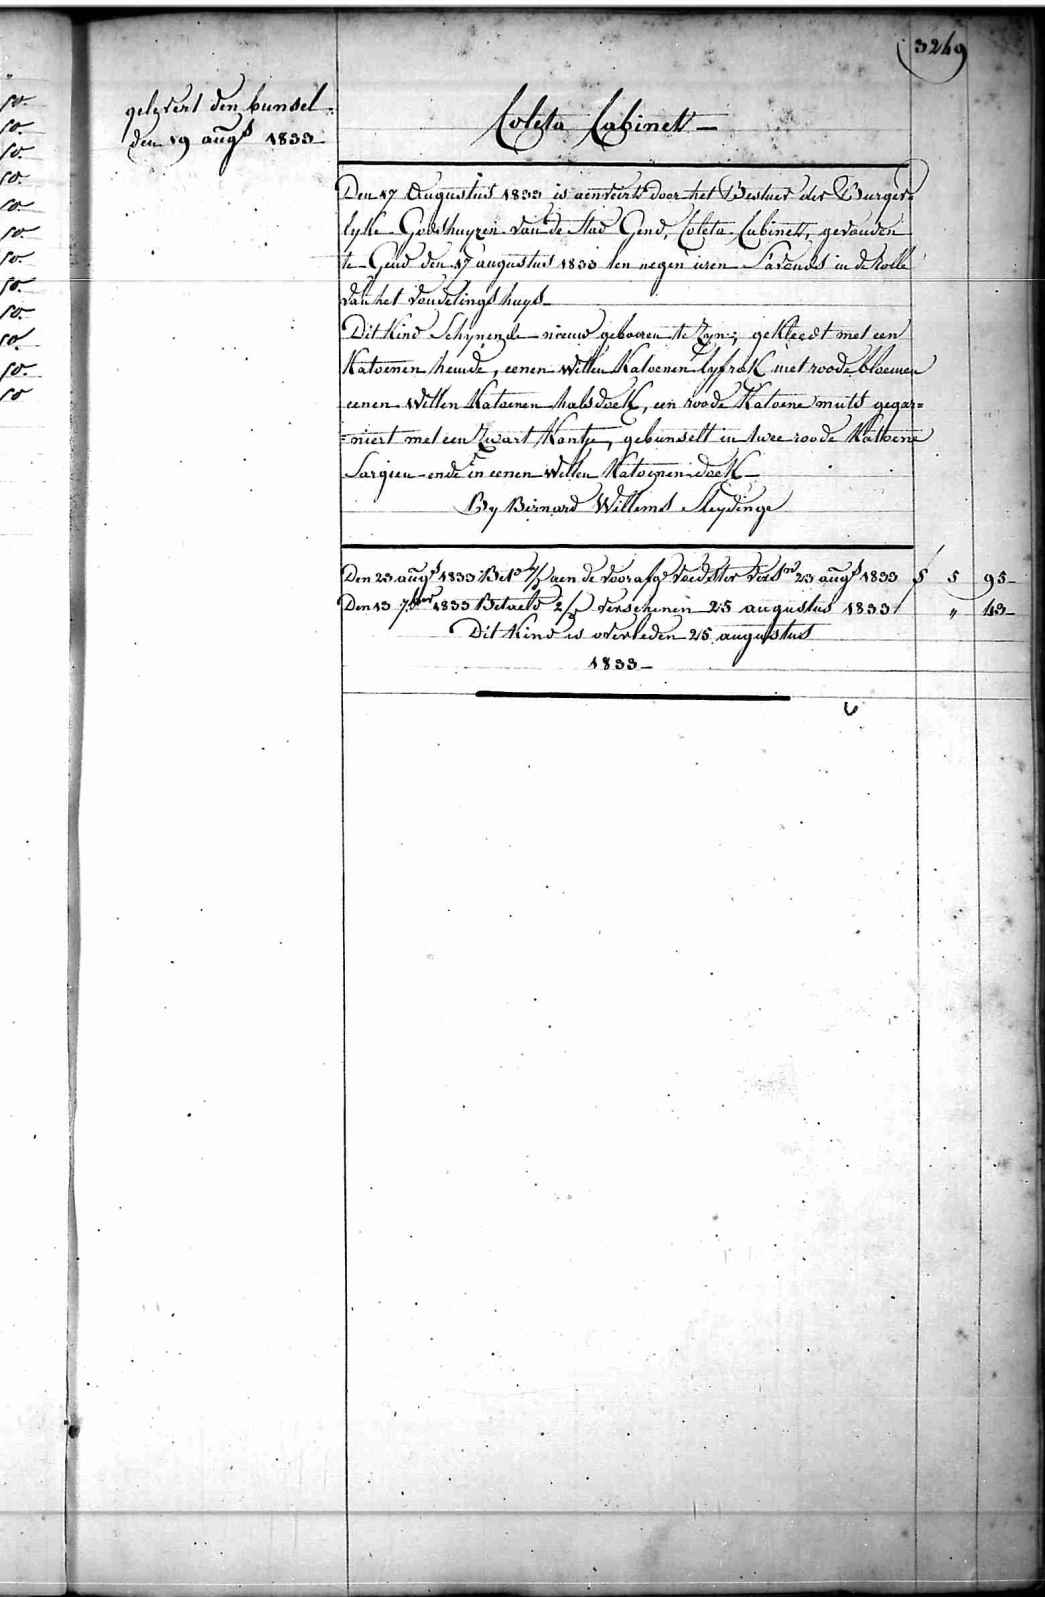 3249
gelevert den bunsel
den 19 augs 1833
Coleta Cabinet
Den 17 Augustus 1833 is aenveirt door het Bestuer der Burger=
lyke Godshuyzen van de stad Gend, Coleta Cabinet, gevonden
te Gend den 17 augustus 1833 ten negen uren Savonds in de Rolle
van het Vondelingshuys
Dit Kind Schynende nieuw gebooren te zyn; gekleedt met een
Katoenen hemde, eenen Witten Katoenen lyfrok met roode bloemen
eenen Witten Katoenen halsdoek, een roode Katoene muts gegar=
=niert met een Zwart Kantje, gebunselt in twee roode Katoene
Sargien ende in eenen Witten Katoenen doek
By Bernard Willems Sleydinge
Den 23 augs 1833 Bet. aen de voorafge voedster 23 augs 1833 5 95
Den 13 7ber 1833 Betaeld 2/ verschenen 25 augustus 1833 " 43
Dit Kind is overleden 25 augustus
1833